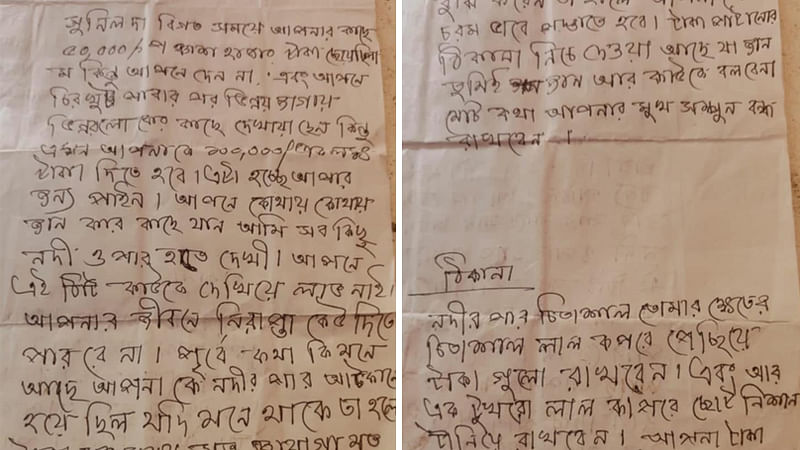 সুনিল দা বিগত সময়ে আপনার কাছে
৫০,০০০/ হাজার টাকা চেয়েছিলা
ম কিন্তু আপনে দেন না. এবং আপনে
চিরখুট পাবার পর ভিন্নয় জাগায়
ভিন্নলো কের কাছে দেখায়া ছেন কিন্তু
এখন আপনাকে ১০০,০০০/
টাকা দিতে হবে। এটা হচ্ছে আপনার
জন্য ফাইন। আপনে কোথায় কোথায়
জান কার কাছে যান আমি সব কিছু
নদী ও পার হতে দেখী। আপনে
এই চিটি কাউকে দেখিয়ে লাভ নাই।
আপনার জীবনে নিরাপ্তা কেউ দিতে
পারবে না। পূর্বে কথা কি মনে
আছে আপনা কে নদীর পার আটকানো
হয়ে ছিল যদি মনে থাকে তা হলে
চরম ভাবে পস্তাতে হবে। টাকা পাটানোর
ঠিকানা নিচে দেওয়া আছে যা জান
তুমিই জান আর কাউকে বলবেনা
মোট কথা আপনার মুখ সম্পুন বন্ধ
রাখবেন।
ঠিকানা
নদীর পার চিতাশাল তোমার ক্ষেতের
চিতাশাল লাল কাপরে পেচিয়ে
টাকা গুলো রাখবেন। এবং আর
এক টুখরো লাল কাপরে ছোট নিশান
টানিয়ে রাখবেন। আপনা টাকা